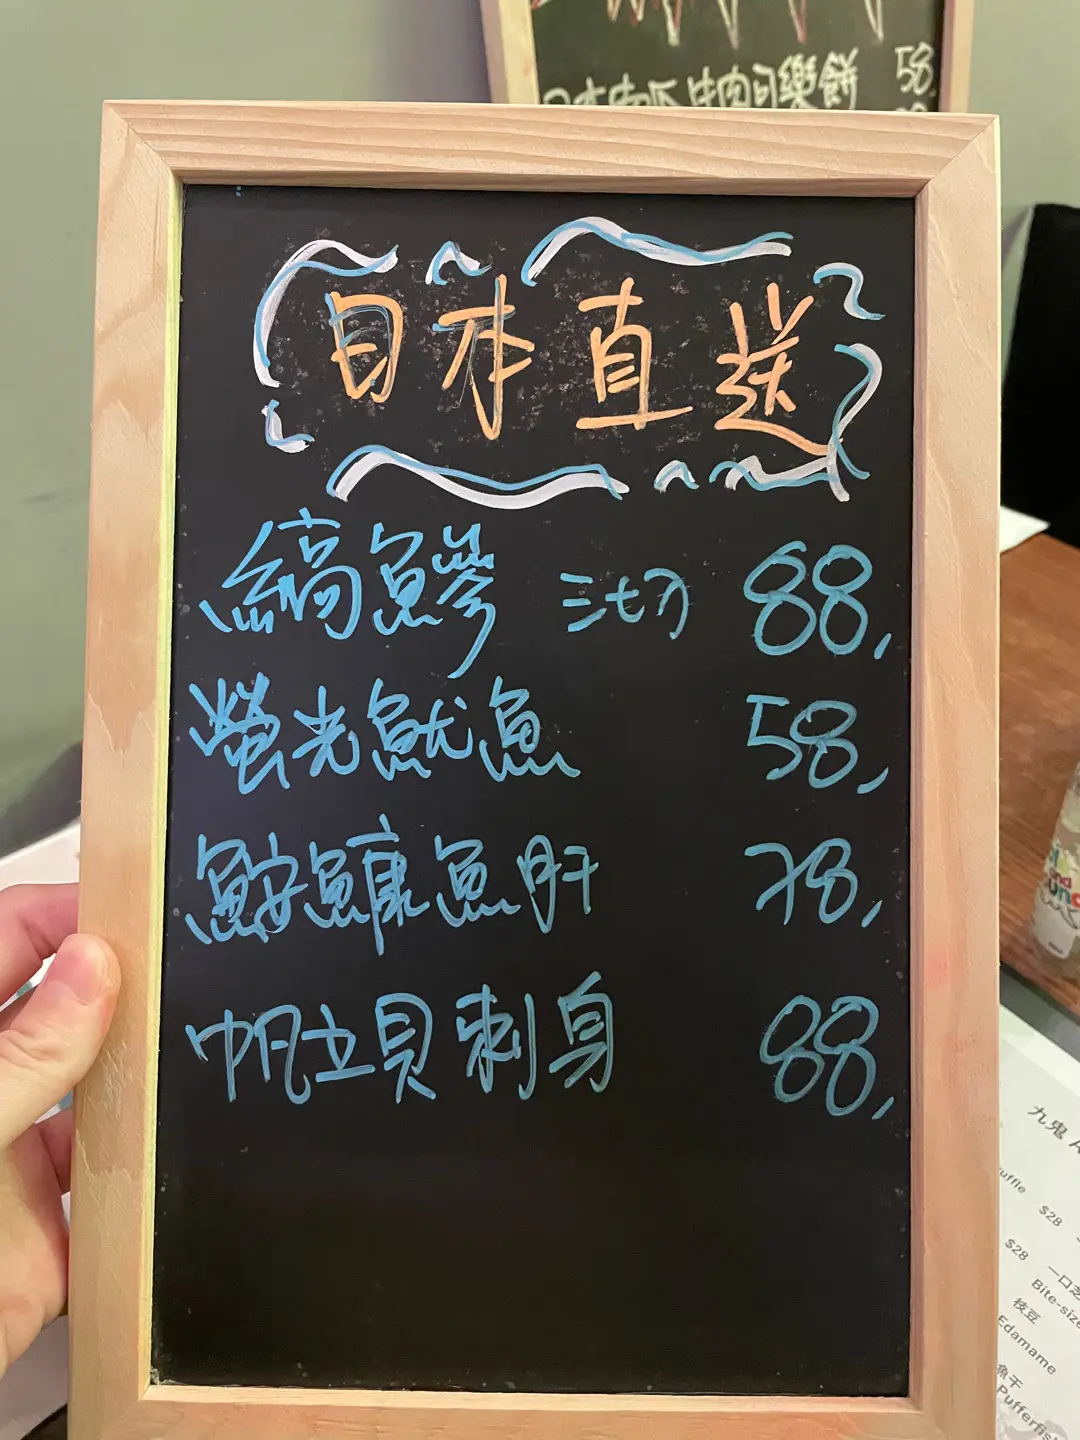 牛肉可樂餅 58,
日本直送
縞鰺 三切 88,
螢光魷魚 58,
鮟鱇魚肝 78,
帆立貝刺身 88,
九鬼 A
uffle
$28
$28
一口芝
Bite-size
枝豆
Edamame
魚干
Pufferfis